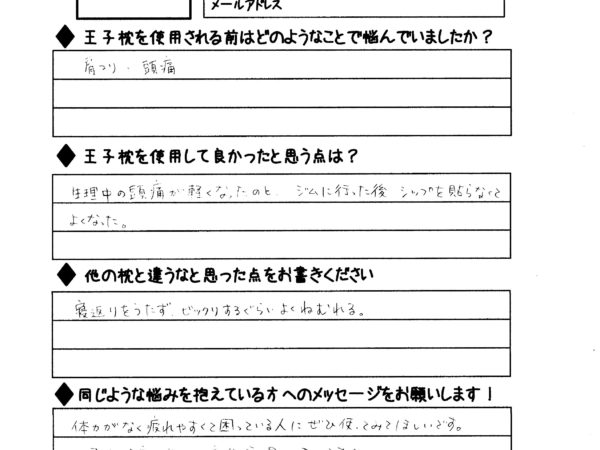 メールアドレス
◆ 王子枕を使用される前はどのようなことで悩んでいましたか？
肩コリ・頭痛
◆ 王子枕を使用して良かったと思う点は？
生理中の頭痛が軽くなったのと、ジムに行った後 シップを貼らなくて
よくなった。
◆ 他の枕と違うなと思った点をお書きください
寝返りをうたず、ビックリするぐらいよくねむれる。
◆ 同じような悩みを抱えている方へのメッセージをお願いします！
体力がなく疲れやすくて困っている人に ぜひ使ってみてほしいです。